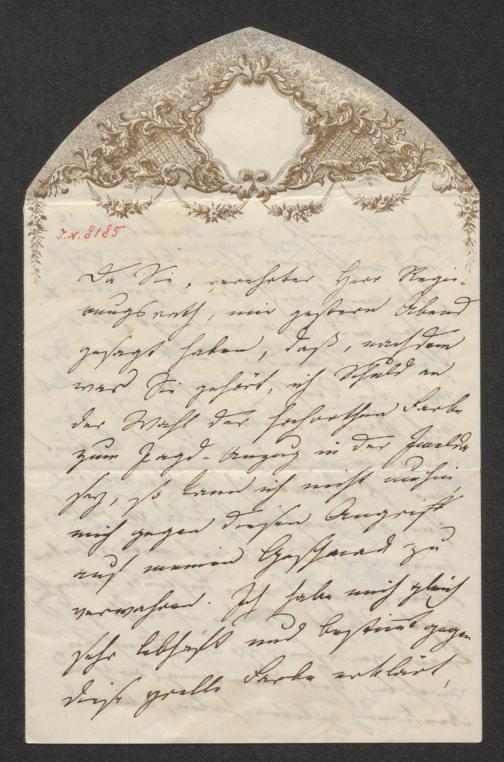 J.N. 8185
Da Sie, verehrter Herr Regie-
rungsrath, mir gestern Abend
gesagt haben, daß, nachdem
was Sie gehört, ich Schuld an
der Wahl der hochrothen Farbe
zum Jagd-Anzug in der
sey, so kann ich nicht umhin,
mich gegen diesen Angriff
auf meinen Geschmack zu
verwahren. Ich habe mich gleich
sehr lebhaft und bestimmt gegen
diese grelle Farbe erklärt,